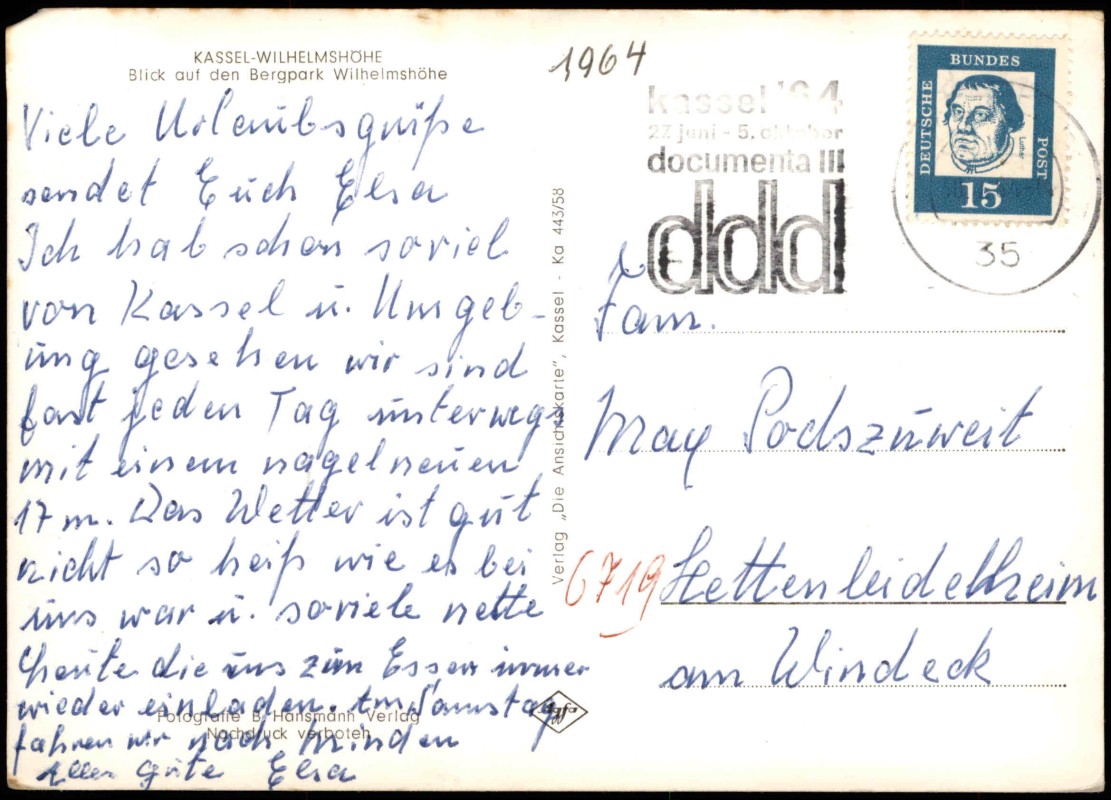 KASSEL-WILHELMSHÖHE
Blick auf den Bergpark Wilhelmshöhe
Viele Urlaubsgrüße
sendet Euch Elsa
Ich hab schon soviel
von Kassel u. Umgeb-
ung gesehen wir sind
fast jeden Tag unterwegs
mit einem nagelneuen
17 m. Das Wetter ist gut
nicht so heiß wie es bei
uns war u. soviele nette
Leute die uns zum Essen immer
wieder einladen. Am Samstag
fahren wir nach Minden
Alles Gute Elsa
Fotografie B. Hansmann Verlag
Nachdruck verboten
Verlag „Die Ansichtskarte", Kassel - Ka 443/58
Agfa
1964
kassel '64
27. juni - 5. oktober
documenta III
ddd
DEUTSCHE
BUNDES
POST
Luther
15
35
Fam.
Max Podszuweit
6719 Hettenleidelheim
am Windeck